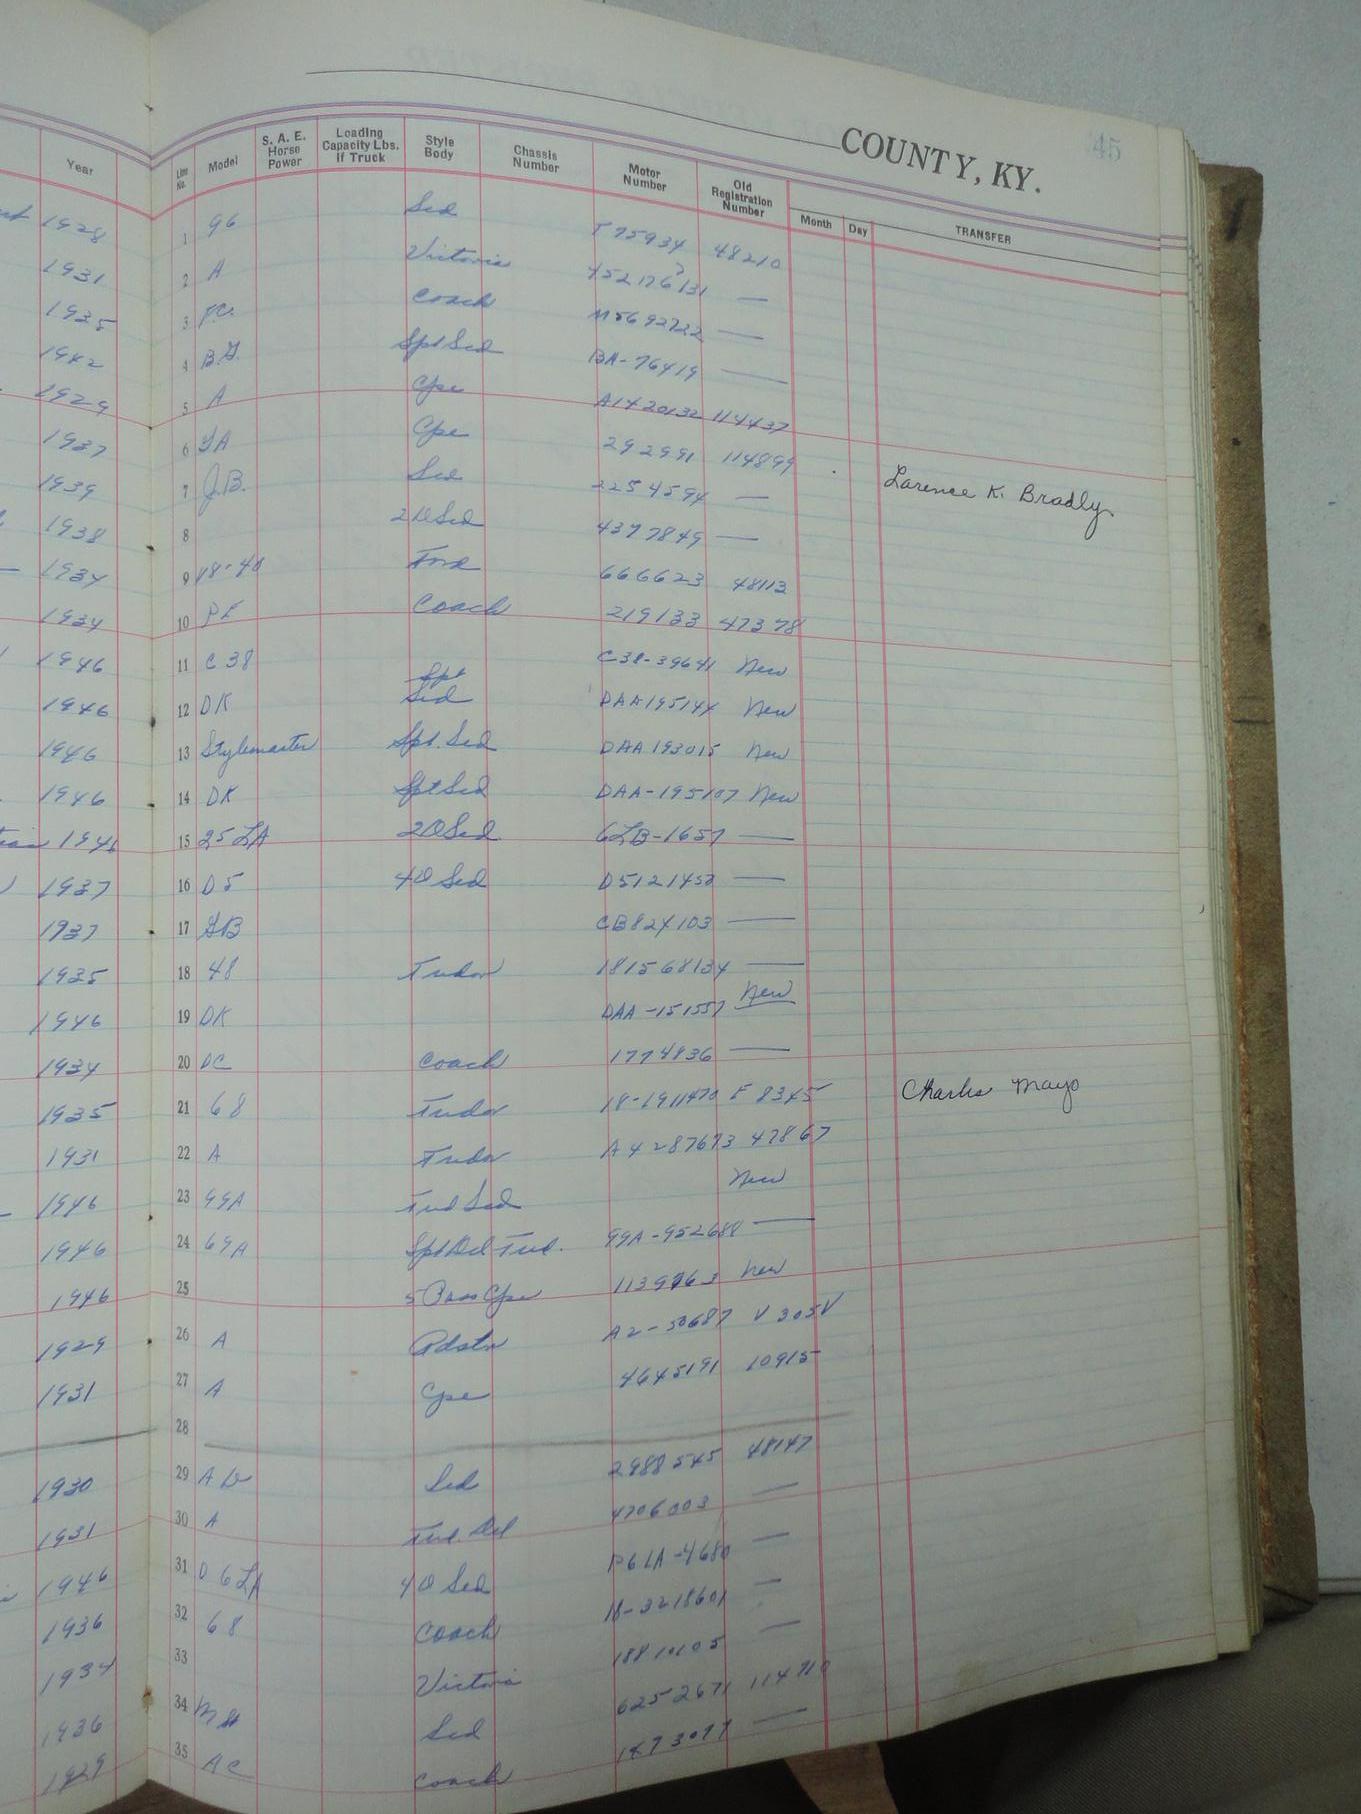 45
COUNTY, KY.
Year Line No. Model S. A. E. Horse Power Loading Capacity Lbs. If Truck Style Body Chassis Number Motor Number Old Registration Number Month Day TRANSFER
1928 1 96 Sed T75934 48210
1931 2 A Victoria 452176131 —
1935 3 Coach M5692722 —
1942 4 B.G. Spt Sed BA-76419 —
1929 5 A Cpe A1420132 114437
1937 6 GA Cpe 292991 114899
1939 7 J.B. Sed 2254594 — Larence K. Bradly
1938 8 2 D Sed 4377849 —
1934 9 18-40 Ford 666623 48113
1934 10 PE Coach 219133 47378
1946 11 C 38 C38-39641 New
1946 12 DK Spt Sed DAA195144 New
1946 13 Stylemaster Spt. Sed DAA 193015 New
1946 14 DK Spt Sed DAA-195107 New
1946 15 25 LA 2 D Sed 6LB-1657 —
1937 16 D5 4 D Sed D5121453 —
1937 17 GB CB824103 —
1935 18 48 Tudor 181568134 —
1946 19 DK DAA-151557 New
1934 20 DC Coach 1774836 —
1935 21 68 Tudor 18-1911470 F 8345 Charles Mayo
1931 22 A Tudor A4287673 47867
1946 23 99A Tud Sed New
1946 24 69A Spt Del Tud. 99A-952688 —
1946 25 5 Pass Cpe 1139763 New
1929 26 A Rdstr A2-50687 V 305V
1931 27 A Cpe 4645191 10915
28
1930 29 A Sed 2988545 48147
1931 30 A Tud. Del 4706003 —
1946 31 D 6 LA 4 D Sed P61A-4680 —
1936 32 68 Coach 18-3218601 —
1934 33 Victoria 18810105 —
1936 34 Sed 6252671 114710
1929 35 AC Coach 1473077 —